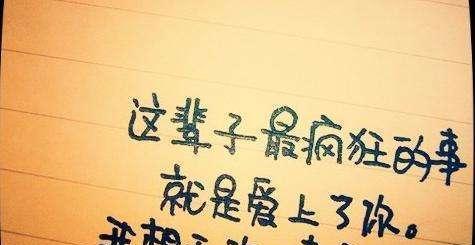 这辈子最疯狂的事
就是爱上了你。
我想